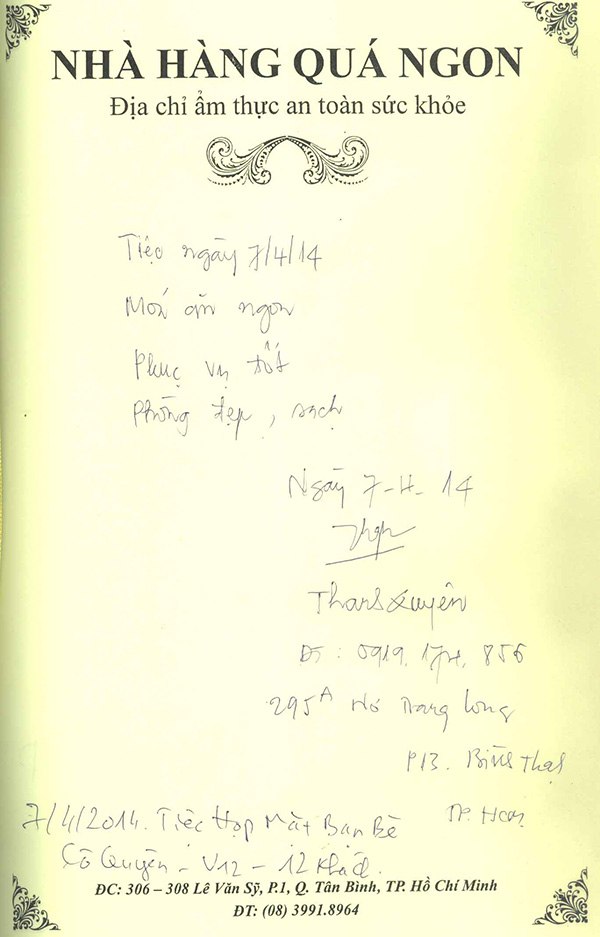 NHÀ HÀNG QUÁ NGON
Địa chỉ ẩm thực an toàn sức khỏe
Tiệc ngày 7/4/14
Món ăn ngon
Phục vụ tốt
Phòng đẹp, sạch
Ngày 7-4-14
Thanh Xuyên
ĐT: 0919. 174. 856
295A Nơ Trang Long
P13. Bình Thạnh
TP. HCM
7/4/2014. Tiệc Họp Mặt Bạn Bè
Cô Quyên - V12 - 12 Khách.
ĐC: 306 – 308 Lê Văn Sỹ, P.1, Q. Tân Bình, TP. Hồ Chí Minh
ĐT: (08) 3991.8964